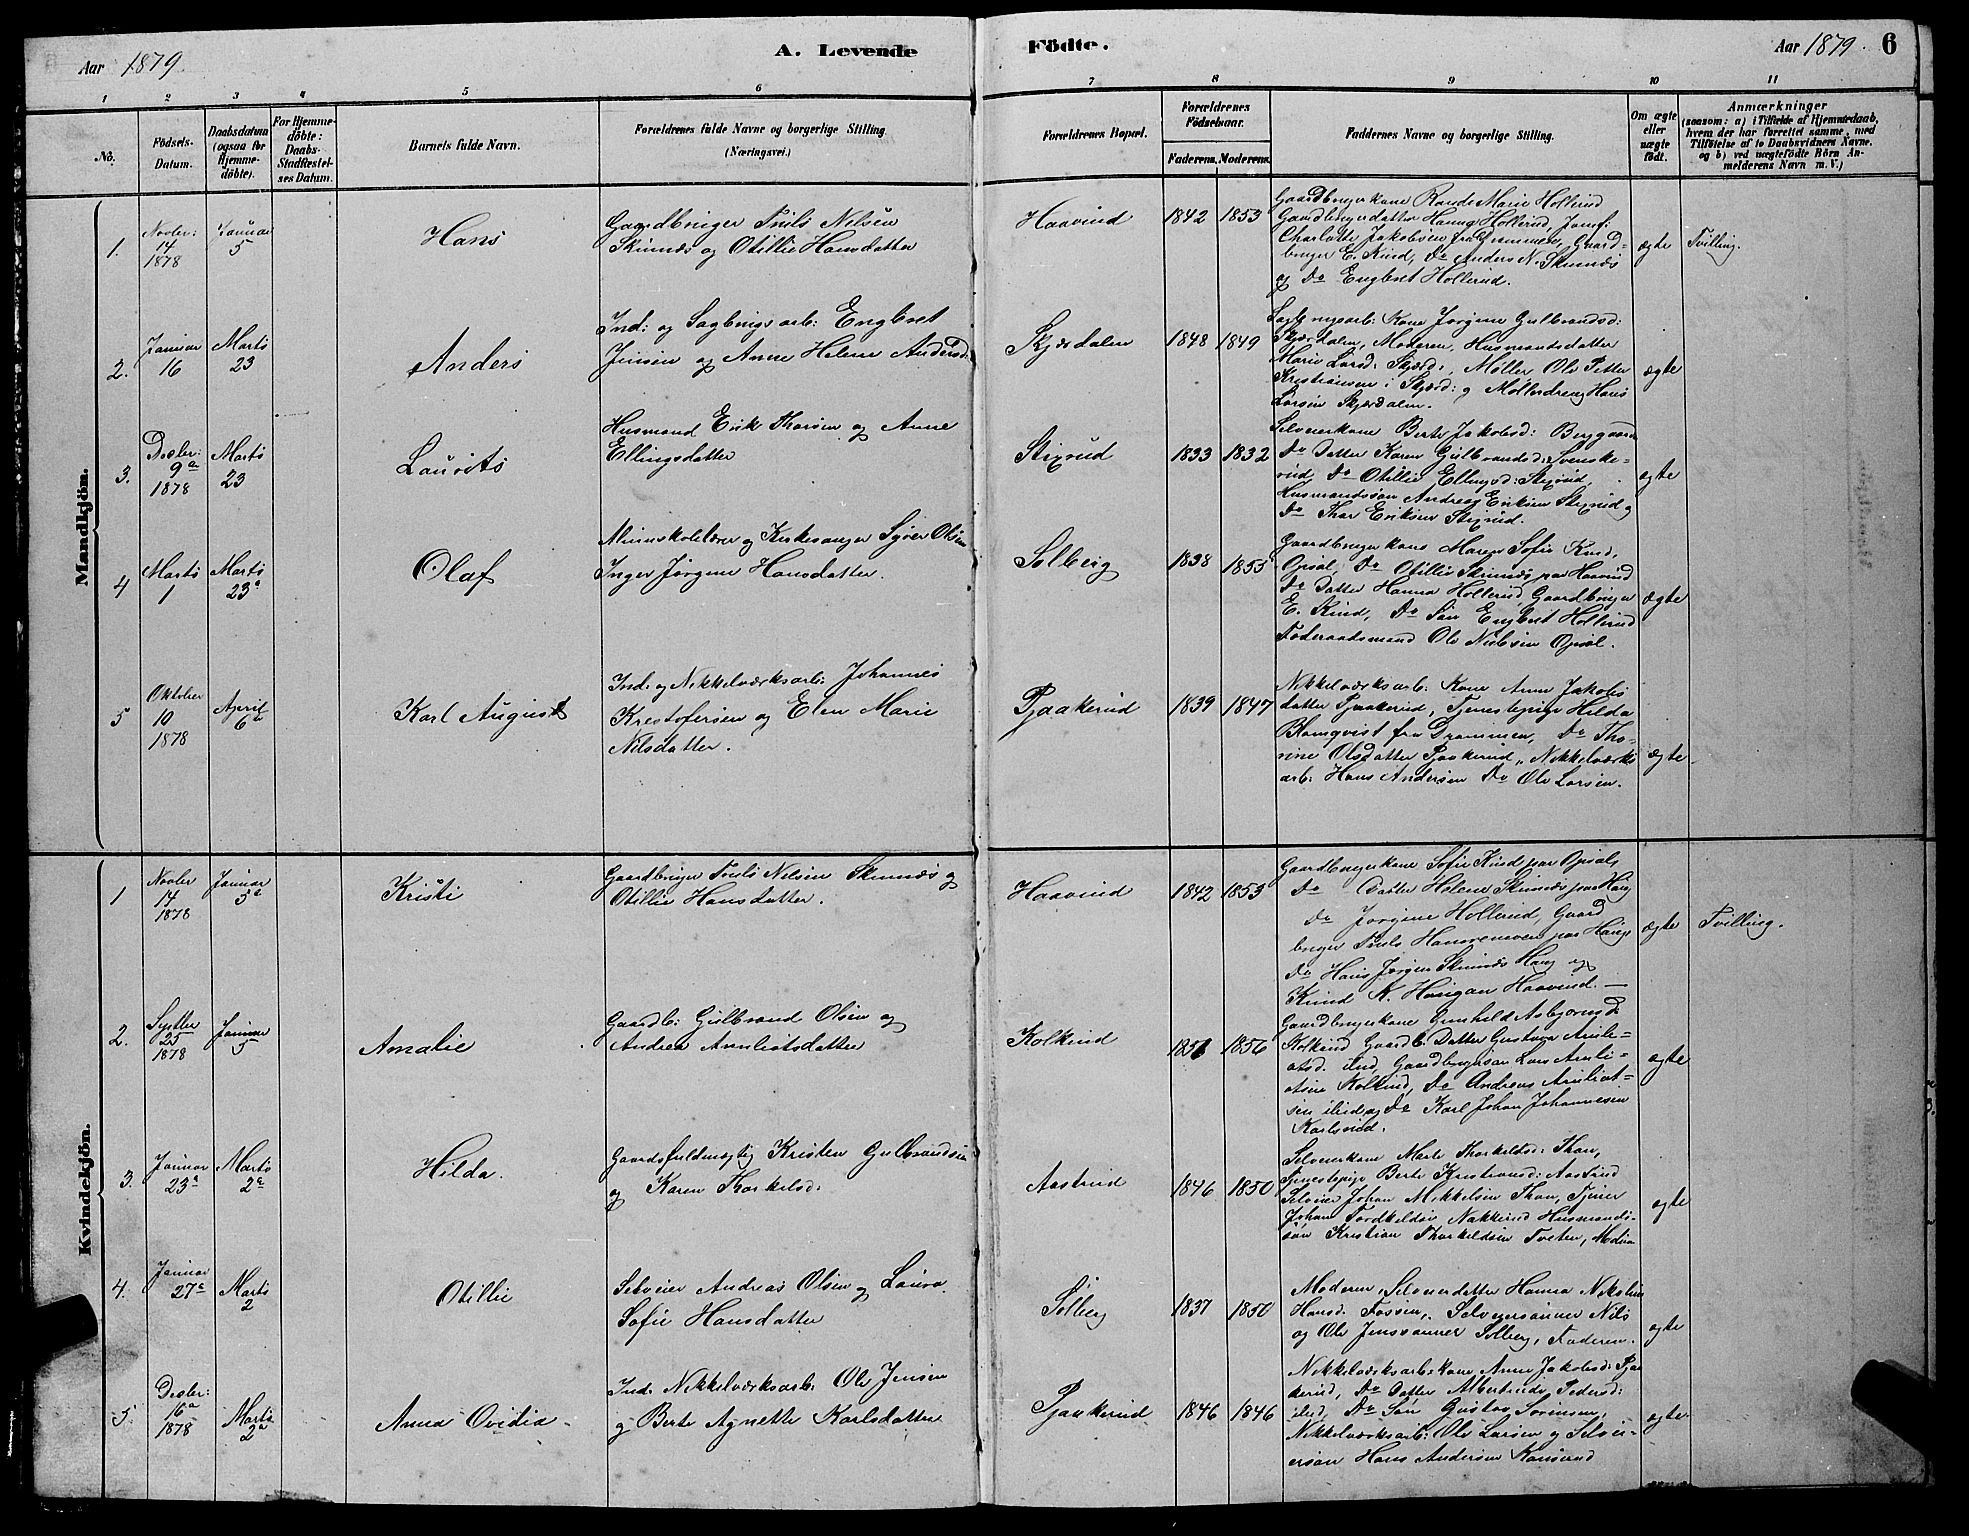 Aar 1879.
A. Levende
Födte.
Aar 1879.
6
1
2
3
4
5
6
7
8
9
10
11
No.
Födsels-
Datum.
Daabsdatum
(ogsaa for
Hjemme-
döbte).
For Hjemme-
döbte:
Daabs-
Stadfæstel-
ses Datum.
Barnets fulde Navn.
Forældrenes fulde Navne og borgerlige Stilling.
(Næringsvei.)
Forældrenes Bopæl.
Forældrenes
Födselsaar.
Faderens.
Moderens.
Faddernes Navne og borgerlige Stilling.
Om ægte
eller
uægte
födt.
Anmærkninger
(saasom: a) i Tilfælde af Hjemmedaab,
hvem der har forrettet samme, med
Tilföielse af to Daabsvidners Navne.
og b) ved uægtefödte Börn An-
melderens Navn m. V.)
Mandkjön.
1.
Novbr:
14
1878
Januar
5
Hans
Gaardbruger Truls Nilsen
Skinnæs og Otillie Hansdatter
Haavind
1842
1853
Gaardbrugerkone Marie Hollerud
Gaardbrugerdatter Hanna Hollerud, Jomf.
Charlotte Jakobsen fra Drammen, Gaard-
bruger E. Kind, Do Anders N. Skinnæs
og Do Engebret Hollerud.
ægte
Tvilling.
2.
Januar
16
Marts
23
Anders
Ind: og Sagbrugsarb: Engbret
Jensen og Anne Helene Andersd:
Skjærdalen
1848
1849
Sagbrugsarb: Kone Jørgine Gulbrandsd:
Skjærdalen, Moderen, Husmandsdatter
Marie Larsd: Skjærd:, Møller Ole Petter
Kristiansen i Skjærd: og Møllerdreng Hans
Larsen Skjærdalen.
ægte
3.
Decbr:
9a
1878
Marts
23
Laurits
Husmand Erik Thorsen og Anne
Ellingsdatter
Stixrud
1833
1832
Selveierkone Berte Jakobsd: Berggaarden
Do Datter Karen Gulbrandsd: Svenske-
rud, Do Otillie Ellingsd: Stixrud,
Husmandssøn Andreas Eriksen Stixrud og
Do Thor Eriksen Stixrud.
ægte
4
Marts
1
Marts
23a
Olaf
Kirkesanger Syver Olsen
Inger Jørgine Hansdatter.
Solberg
1838
1855
Gaardbrugerkone Maren Sofie Kind,
Opsal, Do Otillie Skinnæs paa Haavind
Do Datter Hanna Hollerud, Gaardbruger
E. Kind, Do Søn Engbret Hollerud
Føderaadsmand Ole Nielsen Opsal.
ægte
5
Oktober
10
1878
April
6a
Karl August
Ind: og Nikkelværksarb: Johannes
Kristofersen og Elen Marie
Nilsdatter.
Pjaakerud
1839
1847
Nikkelværksarb: Kone Anne Jakobs
datter Pjaakerud, Tjenestepige Hilda
Blomqvist fra Drammen, Do Tho-
rine Olsdatter Pjaakerud, Nikkelværks
arb: Hans Andersen Do Ole Larsen.
ægte
Kvindekjön.
1
Novbr
14
1878
Januar
5a
Kristi
Gaardbruger Truls Nilsen Skinnæs og
Otillie Hansdatter.
Haavind
1842
1853
Gaardbrugerkone Sofie Kind paa Opsal,
Do Datter Helene Skinnæs paa Haug
Do Jørgine Hollerud, Gaard
bruger Truls Hansvenøen paa Haug
Do Hans Jørgen Skinnæs Haug og
Haavind.
ægte
Tvilling.
2.
Septbr
25
1878
Januar
5
Amalie
Gaardb: Gulbrand Olsen og
Andrea Arnliotsdatter
Kolkind
1851
1856
Gaardbrugerkone Gunhild Asbjørnsd
Kolkind Gaardb: Datter Gustava Arnli-
otsd. ibid, Gaardbrugersøn Lars Arnli-
otsen Kolkind, Do Andreas Arnliot-
sen ibid og Do Karl Johan Johannesen
Karlsrud.
ægte
3.
Januar
23a
Marts
2a
Hilda.
Gaardsfuldmægtig Kristen Gulbrandsen
og Karen Thorkelsd:
Aastrud
1846
1850
Selveierkone Marte Thorkeldsd: Thon,
Tjenestepige Berte Kristiansd: Aastrud
Selveier Johan Mikkelsen Thon, Tjener
Johan Tordkeldsen Nakkerud Husmands-
søn Kristian Thorkeldsen Tveten, Moderen
ægte
4.
Januar
27a
Marts
2
Otillie
Selveier Andreas Olsen og Laura
Sofie Hansdatter
Solberg
1837
1850
Moderen, Selveierdatter Hanna Nikoline
Hansd. Fossen, Selveiersønner Nils
og Ole Solberg, Faderen.
ægte
5.
Decbr:
16a
1878
Marts
2a
Anna Ovidia.
Ind: Nikkelværksarb: Ole Jensen
og Berte Agnette Karlsdatter
Pjaakerud
1846
1846
Nikkelværksarb: kone Anne Jakobsd: Pjaa
kerud, Do Datter Albertine Pedersd:
ibid, Do Søn Gustav Sørensen,
Nikkelværksarb: Ole Larsen og Selvei-
ersøn Hans Andersen
ægte